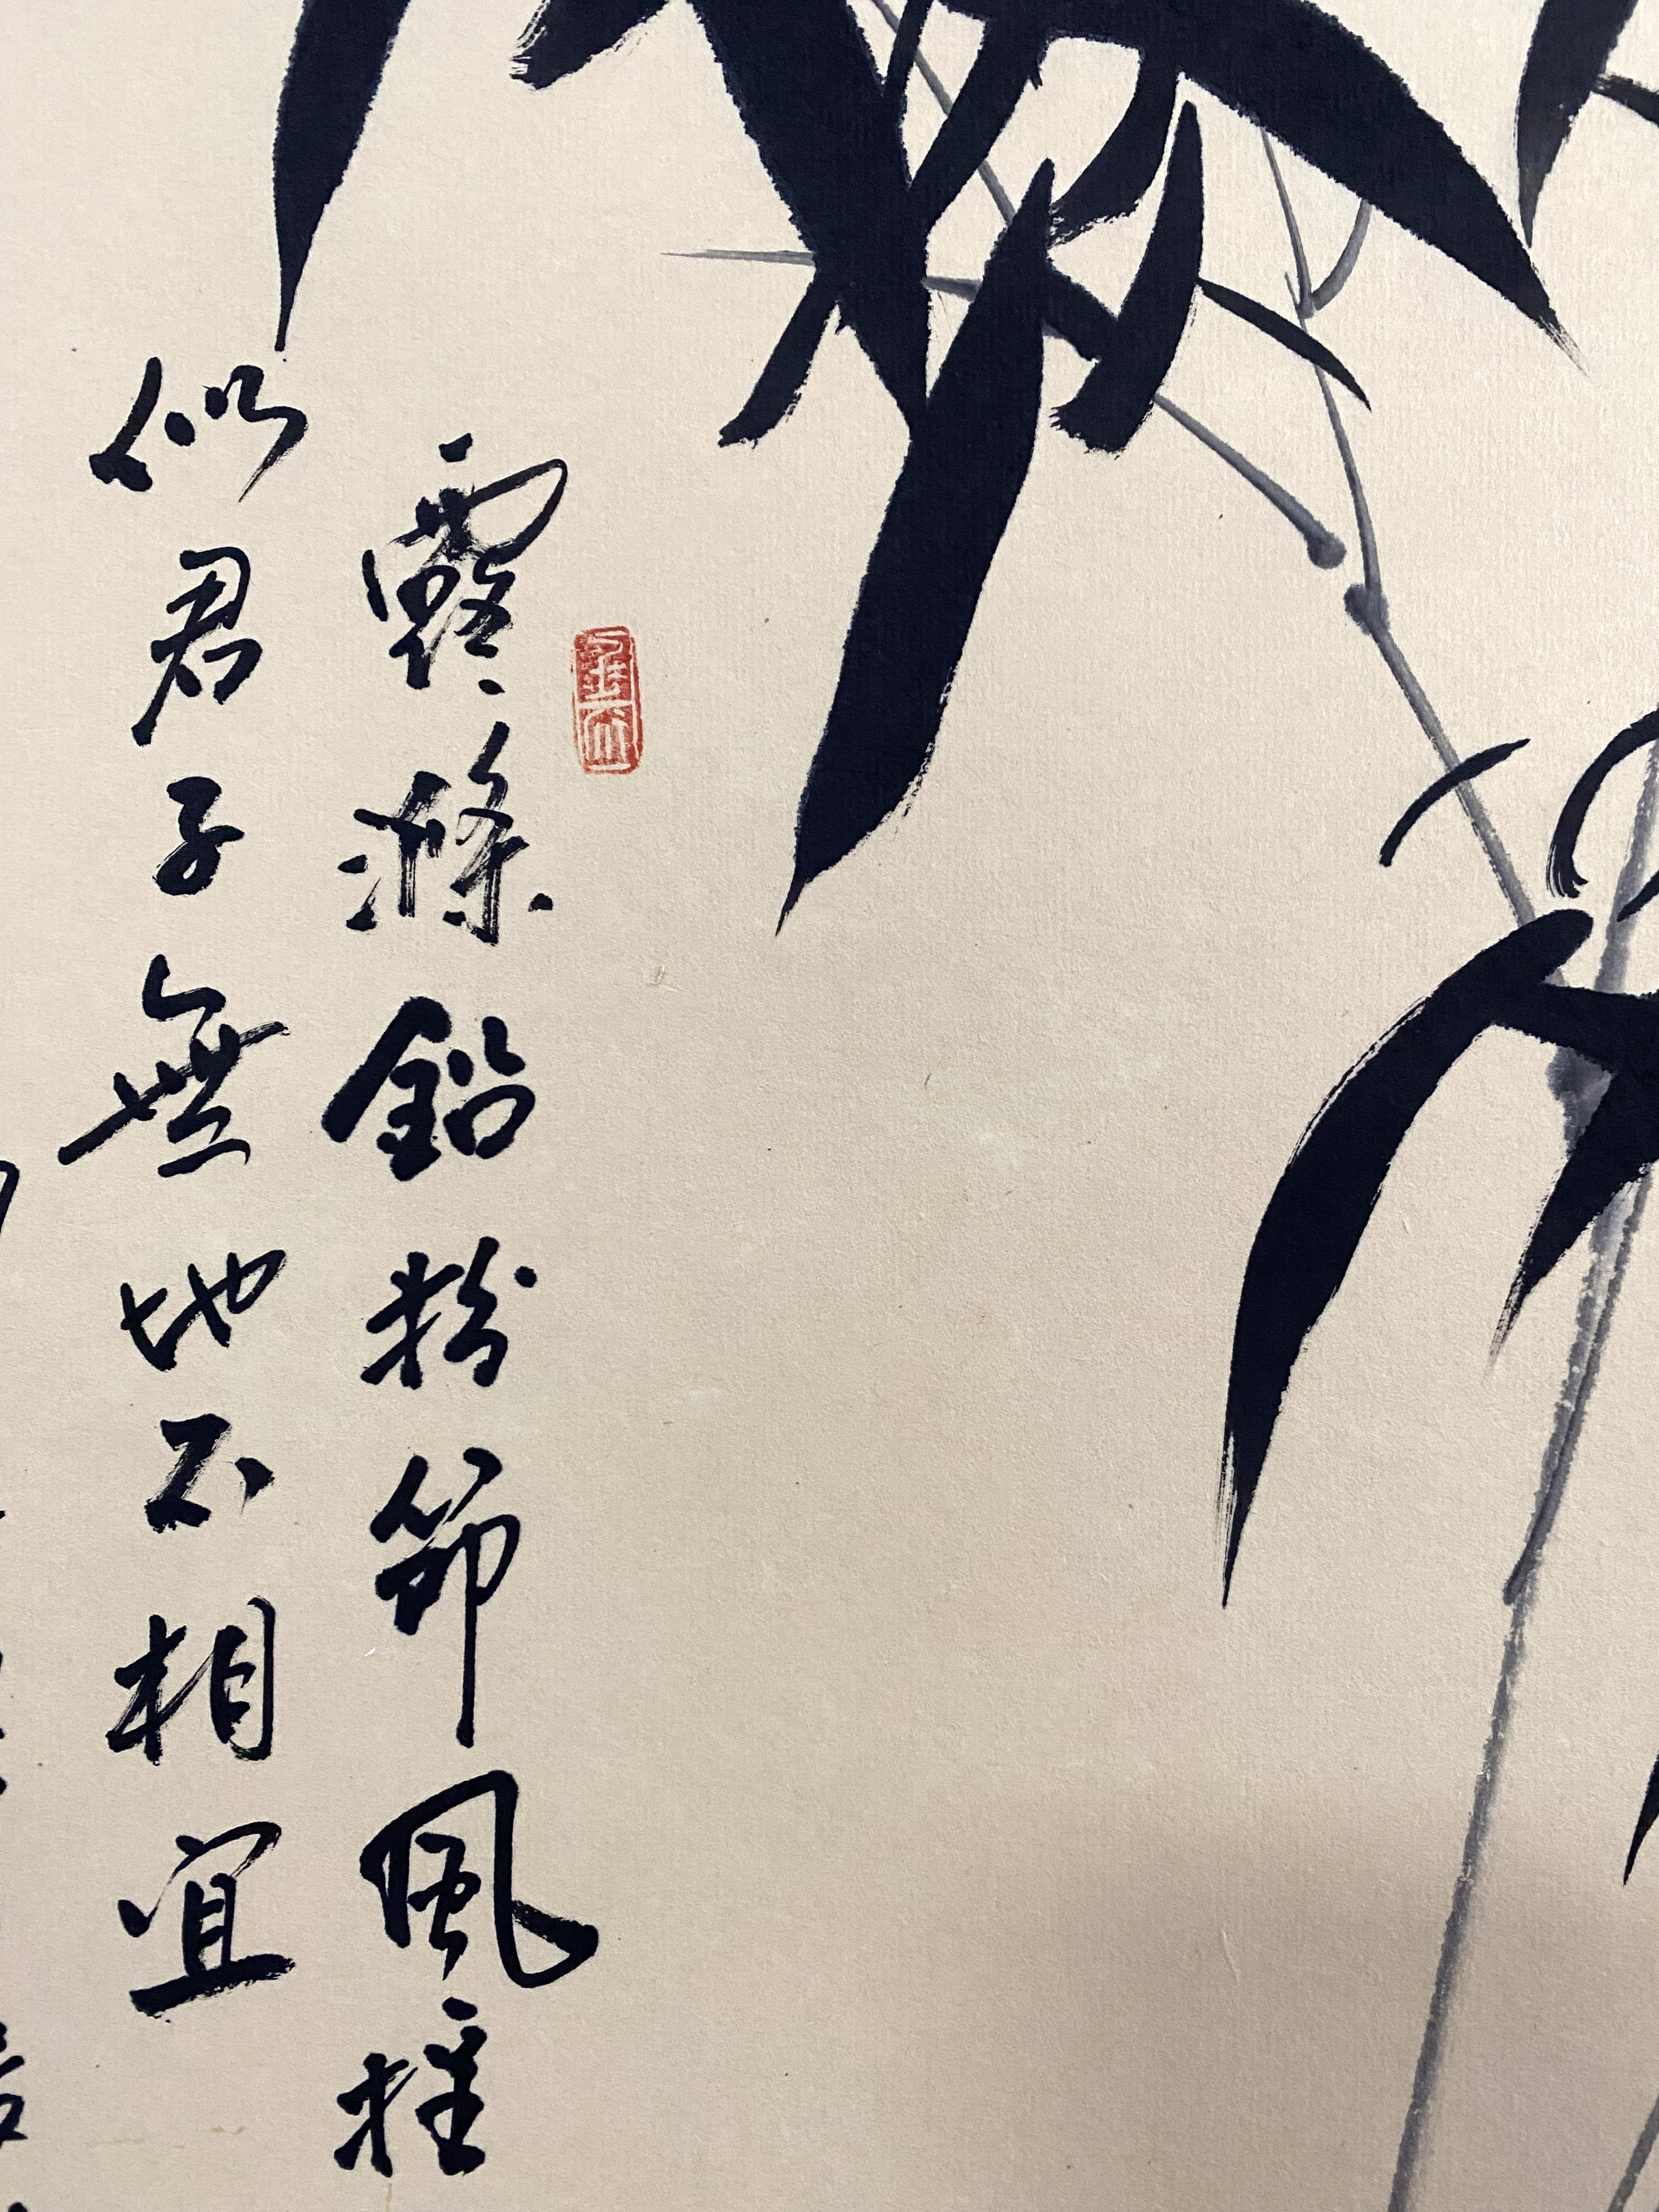 露滌鉛粉節風搖
似君子無地不相宜